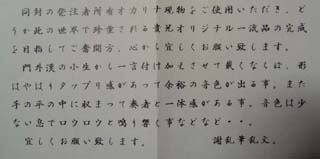 同封の発注者所有オカリナ現物をご使用いただき、ど
うか此の世界で珍重される貴兄オリジナル一流品の完成
を目指してご奮闘方、心から宜しくお願い致します。
門外漢の小生から一言付け加えさせて載くなくは、形
はやはりタップリ感があって余裕の音色が出る事。また
手の平の中に収まって奏者と一体感がある事。音色は少
ない息でロウロウと鳴り響く事などなど・・。
宜しくお願い致します。 謝乱筆乱文。